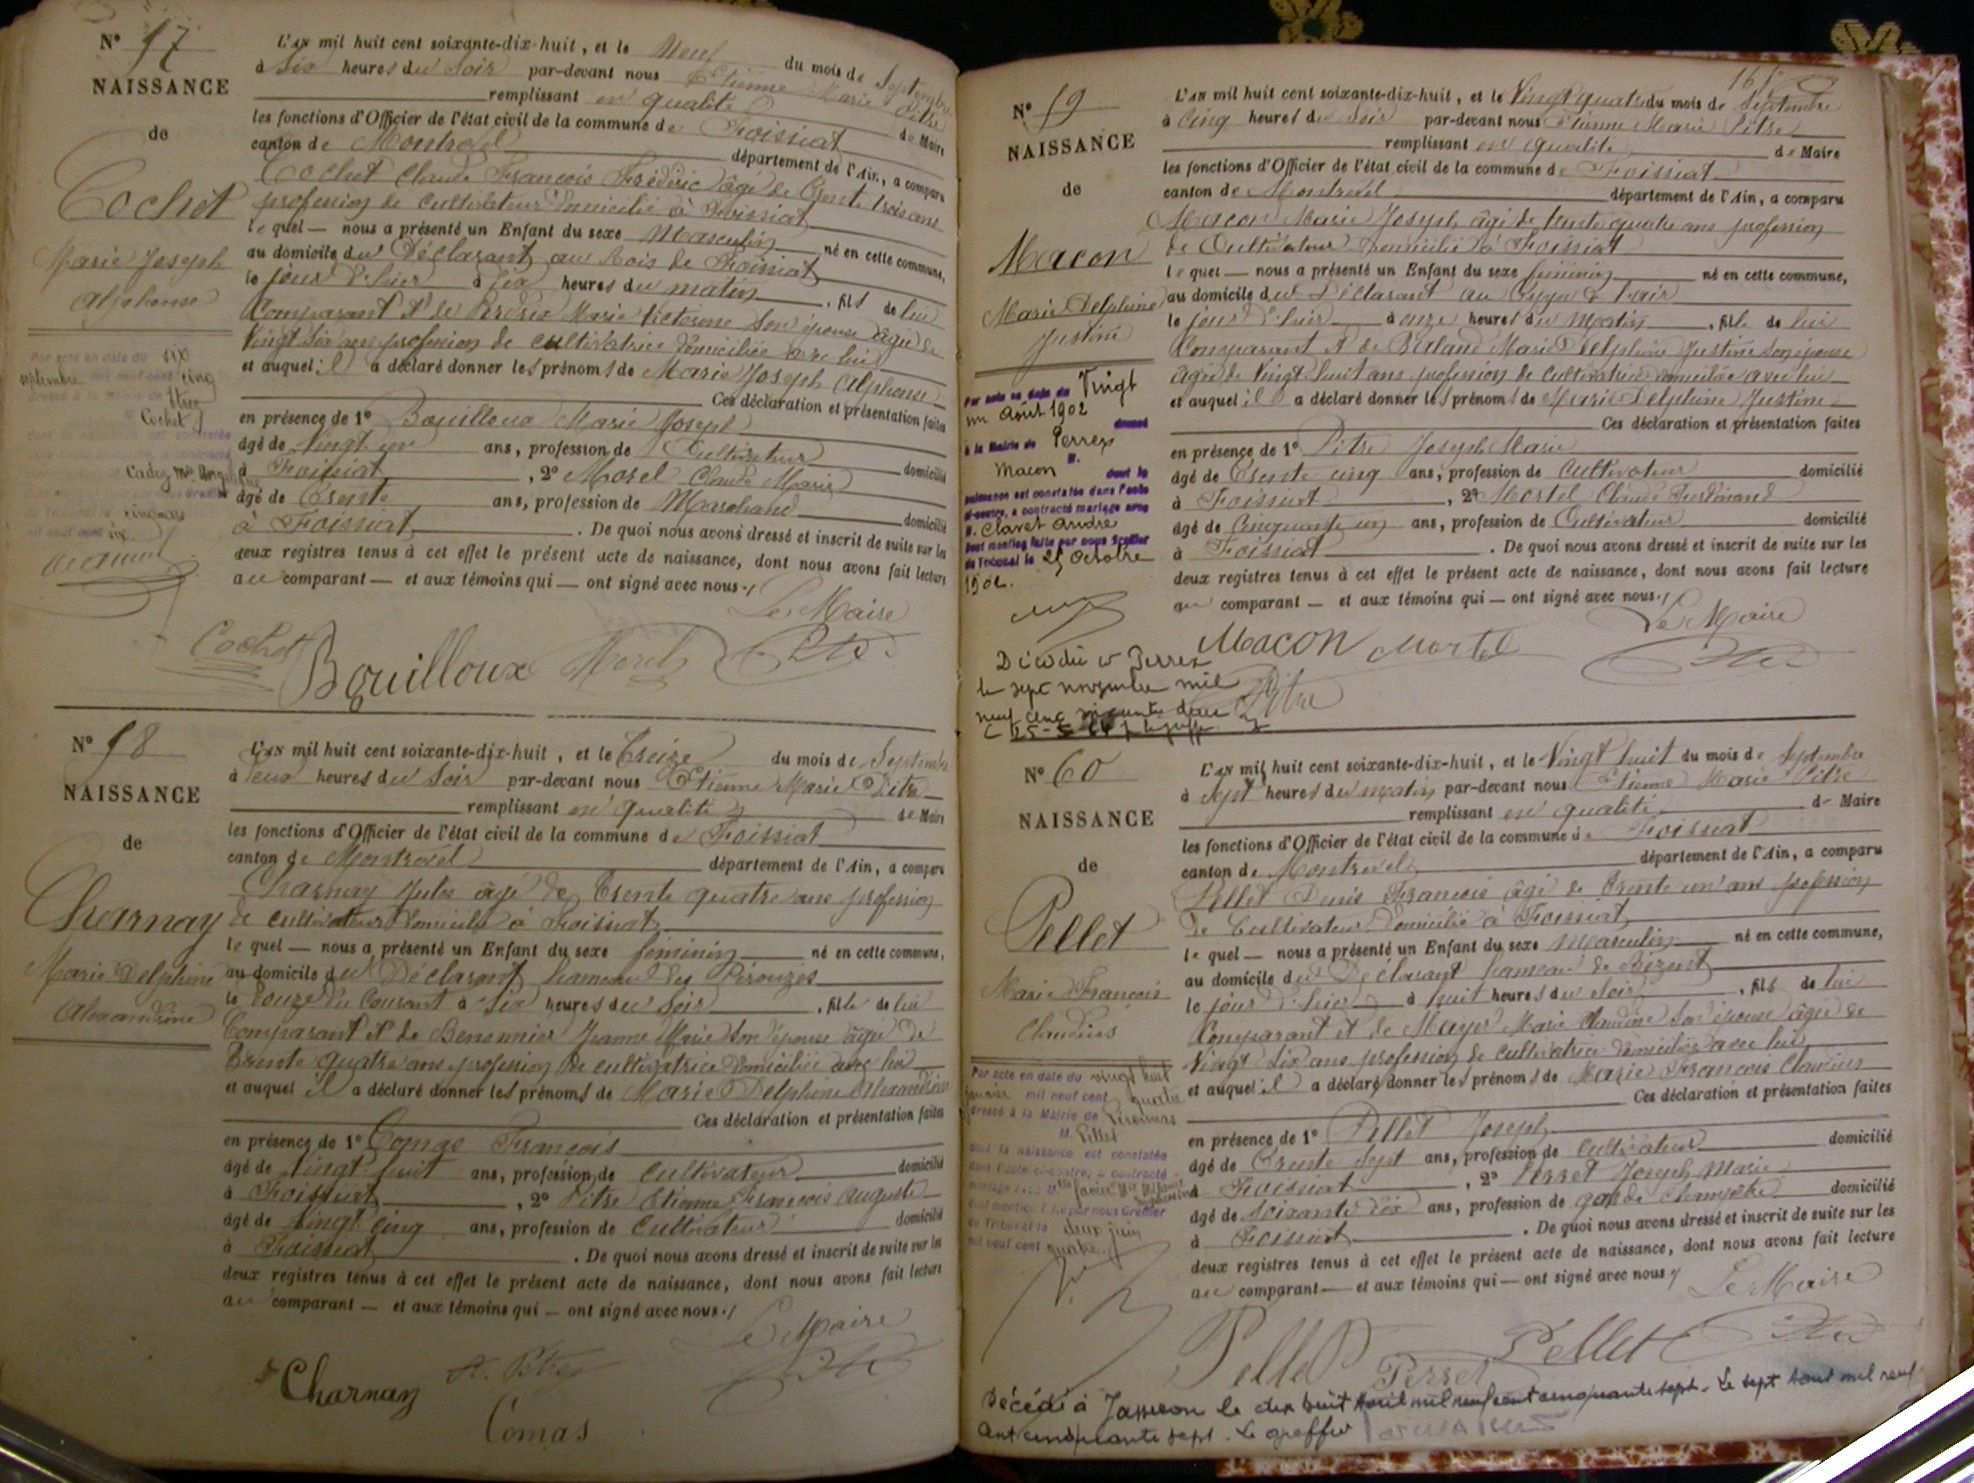 N° 57
NAISSANCE
de
Cochet
Marie Joseph
Alphonse
Par acte en date du six
septembre mil neuf cent cinq
Cochet
Cadez
L'AN mil huit cent soixante-dix-huit, et le Neuf du mois de Septembre
à Six heures du Soir par-devant nous Etienne Marie Pitre
remplissant en qualité de Maire
les fonctions d'Officier de l'état civil de la commune de Foissiat
canton de Montrevel département de l'Ain, a comparu
Cochet Claude François Frédéric âgé de Trente trois ans
profession de cultivateur domicilié à Foissiat
le quel — nous a présenté un Enfant du sexe Masculin né en cette commune,
au domicile du Déclarant au Bois de Foissiat
le jour d'hier à six heures du matin, fils de lui
Comparant et de Marie Victorine son épouse âgée de
Vingt six ans profession de cultivatrice domiciliée avec lui
et auquel il a déclaré donner les prénoms de Marie Joseph Alphonse
Ces déclaration et présentation faites
en présence de 1° Bouilloux Marie Joseph
âgé de Vingt un ans, profession de Cultivateur domicilié
à Foissiat, 2° Morel Claude Marie
âgé de Trente ans, profession de Marchand domicilié
à Foissiat. De quoi nous avons dressé et inscrit de suite sur les
deux registres tenus à cet effet le présent acte de naissance, dont nous avons fait lecture
au comparant — et aux témoins qui — ont signé avec nous ./
Le Maire
Cochet Bouilloux Morel Pitre
N° 58
NAISSANCE
de
Charnay
Marie Delphine
Alexandrine
L'AN mil huit cent soixante-dix-huit, et le Treize du mois de Septembre
à deux heures du Soir par-devant nous Etienne Marie Pitre
remplissant en qualité de Maire
les fonctions d'Officier de l'état civil de la commune de Foissiat
canton de Montrevel département de l'Ain, a comparu
Charnay Jules âgé de Trente quatre ans profession
de cultivateur domicilié à Foissiat
le quel — nous a présenté un Enfant du sexe féminin né en cette commune,
au domicile du Déclarant hameau des Pérouzes
le Douze du Courant à six heures du Soir, fille de lui
Comparant et de Benonnier Jeanne Marie son épouse âgée de
Trente quatre ans profession de cultivatrice domiciliée avec lui
et auquel il a déclaré donner les prénoms de Marie Delphine Alexandrine
Ces déclaration et présentation faites
en présence de 1° Comas François
âgé de vingt huit ans, profession de Cultivateur domicilié
à Foissiat, 2° Pitre Etienne François Auguste
âgé de vingt cinq ans, profession de Cultivateur domicilié
à Foissiat. De quoi nous avons dressé et inscrit de suite sur les
deux registres tenus à cet effet le présent acte de naissance, dont nous avons fait lecture
au comparant — et aux témoins qui — ont signé avec nous ./
Le Maire
Charnay A. Pitre
Comas
N° 59
NAISSANCE
de
Macon
Marie Delphine
Justine
Par acte en date du Vingt
un Août 1902 dressé
à la Mairie de Perrex
Macon dont la
naissance est constatée dans l'acte
ci-contre, a contracté mariage avec
M. Clavet André
Dont mention faite par nous Greffier
du Tribunal le 25 Octobre
1902.
Décédée à Perrex
le sept novembre mil
neuf cent
L'AN mil huit cent soixante-dix-huit, et le Vingt quatre du mois de Septembre
à Cinq heures du Soir par-devant nous Etienne Marie Pitre
remplissant en qualité de Maire
les fonctions d'Officier de l'état civil de la commune de Foissiat
canton de Montrevel département de l'Ain, a comparu
Macon Marie Joseph âgé de trente quatre ans profession
de Cultivateur domicilié à Foissiat
le quel — nous a présenté un Enfant du sexe féminin né en cette commune,
au domicile du Déclarant au
le jour d'hier à onze heures du Matin, fille de lui
Comparant et de Marie Delphine Justine son épouse
âgée de Vingt huit ans profession de cultivatrice domiciliée avec lui
et auquel il a déclaré donner les prénoms de Marie Delphine Justine
Ces déclaration et présentation faites
en présence de 1° Pitre Joseph Marie
âgé de Trente cinq ans, profession de Cultivateur domicilié
à Foissiat, 2° Mortel Claude Ferdinand
âgé de Cinquante un ans, profession de Cultivateur domicilié
à Foissiat. De quoi nous avons dressé et inscrit de suite sur les
deux registres tenus à cet effet le présent acte de naissance, dont nous avons fait lecture
au comparant — et aux témoins qui — ont signé avec nous ./
Le Maire
Macon Mortel
Pitre
N° 60
NAISSANCE
de
Pellet
Marie François
Claudius
Par acte en date du vingt huit
janvier mil neuf cent quatre
dressé à la Mairie de Péronnas
M. Pellet
dont la naissance est constatée
dans l'acte ci-contre, a contracté
mariage
dont mention faite par nous Greffier
du Tribunal le deux juin
mil neuf cent quatre
L'AN mil huit cent soixante-dix-huit, et le Vingt huit du mois de Septembre
à Sept heures du matin par-devant nous Etienne Marie Pitre
remplissant en qualité de Maire
les fonctions d'Officier de l'état civil de la commune de Foissiat
canton de Montrevel département de l'Ain, a comparu
Pellet Denis François âgé de Trente un ans profession
de Cultivateur domicilié à Foissiat
le quel — nous a présenté un Enfant du sexe Masculin né en cette commune,
au domicile du Déclarant hameau de
le jour d'hier à huit heures du Soir, fils de lui
Comparant et de Mayer Marie Claudine son épouse âgée de
Vingt six ans profession de cultivatrice domiciliée avec lui
et auquel il a déclaré donner les prénoms de Marie François Claudius
Ces déclaration et présentation faites
en présence de 1° Pellet Joseph
âgé de Trente sept ans, profession de cultivateur domicilié
à Foissiat, 2° Perret Joseph Marie
âgé de Soixante dix ans, profession de garde champêtre domicilié
à Foissiat. De quoi nous avons dressé et inscrit de suite sur les
deux registres tenus à cet effet le présent acte de naissance, dont nous avons fait lecture
au comparant — et aux témoins qui — ont signé avec nous ./
Le Maire
Pellet Perret Pellet
Décédé à Jasseron le dix huit Avril mil neuf cent cinquante sept. Le sept Aout mil neuf
cent cinquante sept. Le greffier